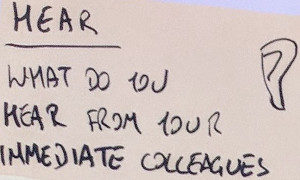 HEAR
WHAT DO YOU
HEAR FROM YOUR
IMMEDIATE COLLEAGUES